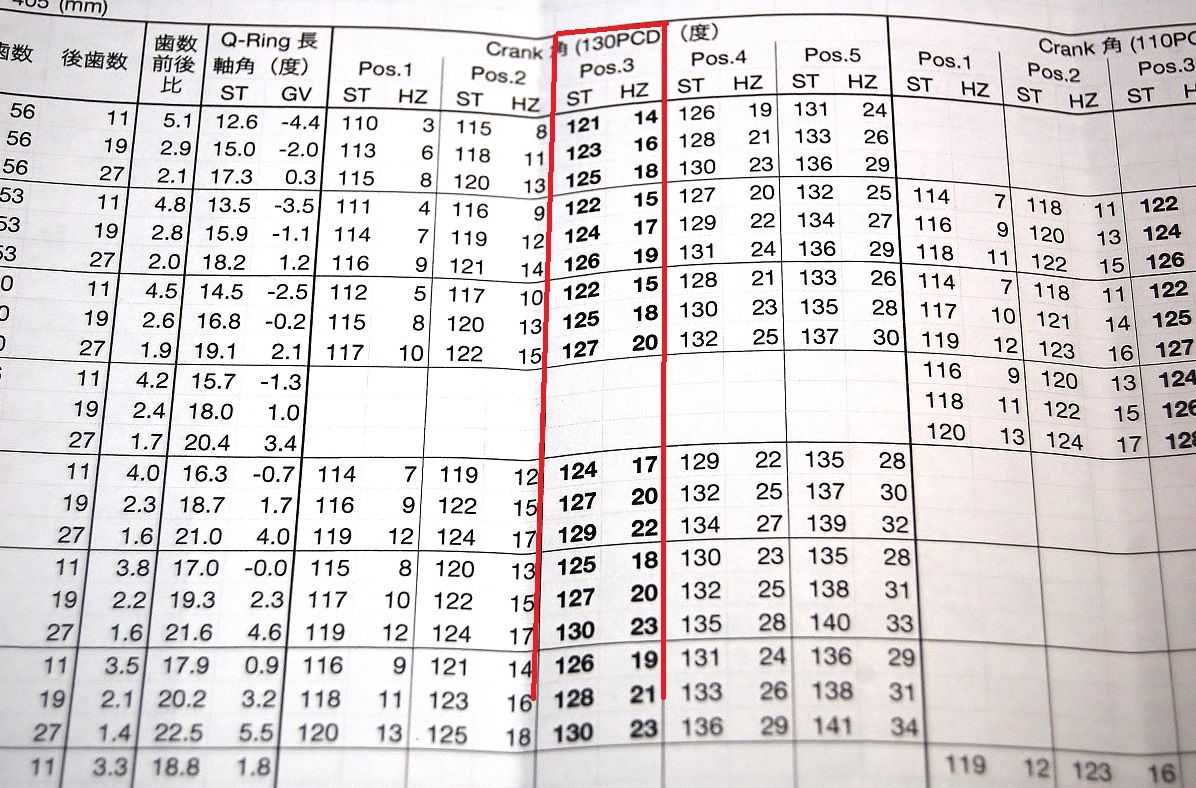 405 (mm)
歯数 後歯数 歯数前後比 Q-Ring 長軸角 (度) Crank 角 (130PCD) (度) Crank 角 (110PC
Pos.1 Pos.2 Pos.3 Pos.4 Pos.5 Pos.1 Pos.2 Pos.3
ST GV ST HZ ST HZ ST HZ ST HZ ST HZ ST HZ ST HZ ST
56 11 5.1 12.6 -4.4 110 3 115 8 121 14 126 19 131 24
56 19 2.9 15.0 -2.0 113 6 118 11 123 16 128 21 133 26
56 27 2.1 17.3 0.3 115 8 120 13 125 18 130 23 136 29
53 11 4.8 13.5 -3.5 111 4 116 9 122 15 127 20 132 25 114 7 118 11 122
53 19 2.8 15.9 -1.1 114 7 119 12 124 17 129 22 134 27 116 9 120 13 124
53 27 2.0 18.2 1.2 116 9 121 14 126 19 131 24 136 29 118 11 122 15 126
0 11 4.5 14.5 -2.5 112 5 117 10 122 15 128 21 133 26 114 7 118 11 122
0 19 2.6 16.8 -0.2 115 8 120 13 125 18 130 23 135 28 117 10 121 14 125
27 1.9 19.1 2.1 117 10 122 15 127 20 132 25 137 30 119 12 123 16 127
11 4.2 15.7 -1.3 116 9 120 13 124
19 2.4 18.0 1.0 118 11 122 15 126
27 1.7 20.4 3.4 120 13 124 17 128
11 4.0 16.3 -0.7 114 7 119 12 124 17 129 22 135 28
19 2.3 18.7 1.7 116 9 122 15 127 20 132 25 137 30
27 1.6 21.0 4.0 119 12 124 17 129 22 134 27 139 32
11 3.8 17.0 -0.0 115 8 120 13 125 18 130 23 135 28
19 2.2 19.3 2.3 117 10 122 15 127 20 132 25 138 31
27 1.6 21.6 4.6 119 12 124 17 130 23 135 28 140 33
11 3.5 17.9 0.9 116 9 121 14 126 19 131 24 136 29
19 2.1 20.2 3.2 118 11 123 16 128 21 133 26 138 31
27 1.4 22.5 5.5 120 13 125 18 130 23 136 29 141 34
11 3.3 18.8 1.8 119 12 123 16